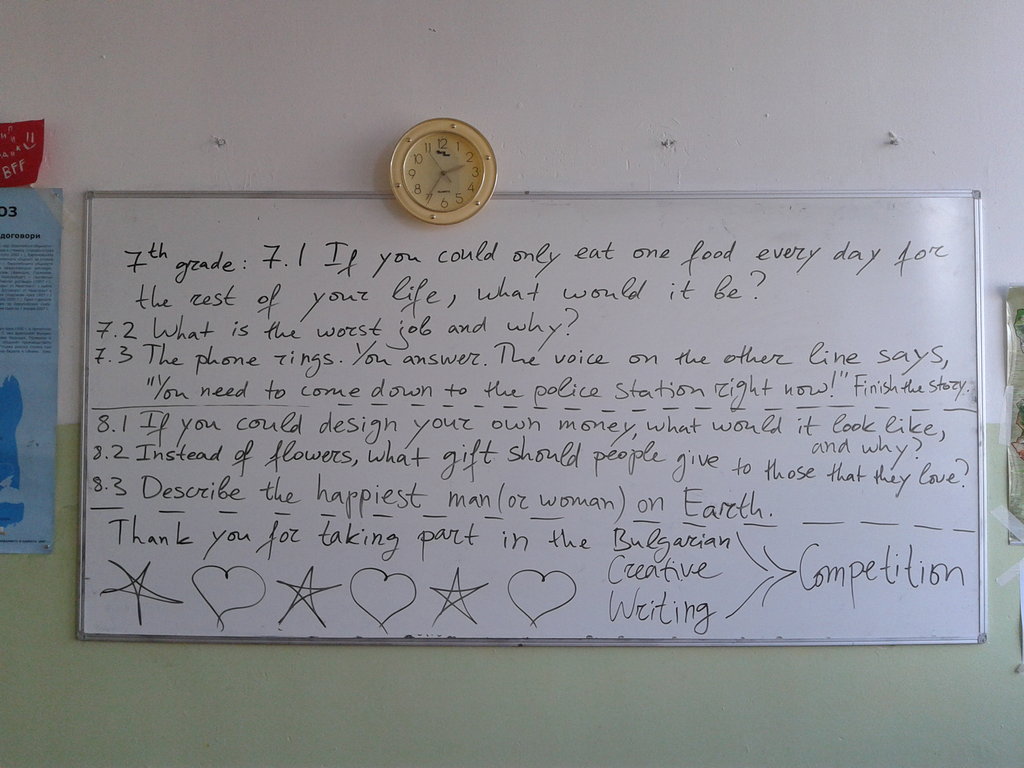 BFF
ОЗ
договори
11 12 1
10 2
9 3
8 4
7 6 5
7th grade: 7.1 If you could only eat one food every day for
the rest of your life, what would it be?
7.2 What is the worst job and why?
7.3 The phone rings. You answer. The voice on the other line says,
"You need to come down to the police station right now!" Finish the story.
8.1 If you could design your own money, what would it look like,
and why?
8.2 Instead of flowers, what gift should people give to those that they love?
8.3 Describe the happiest man (or woman) on Earth.
Thank you for taking part in the Bulgarian
Creative
Writing
Competition